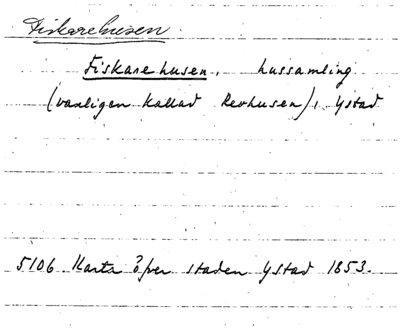 Fiskarehusen
Fiskarehusen, hussamling
(vanligen kallad Revhusen), Ystad
5106 Karta öfver staden Ystad 1853.